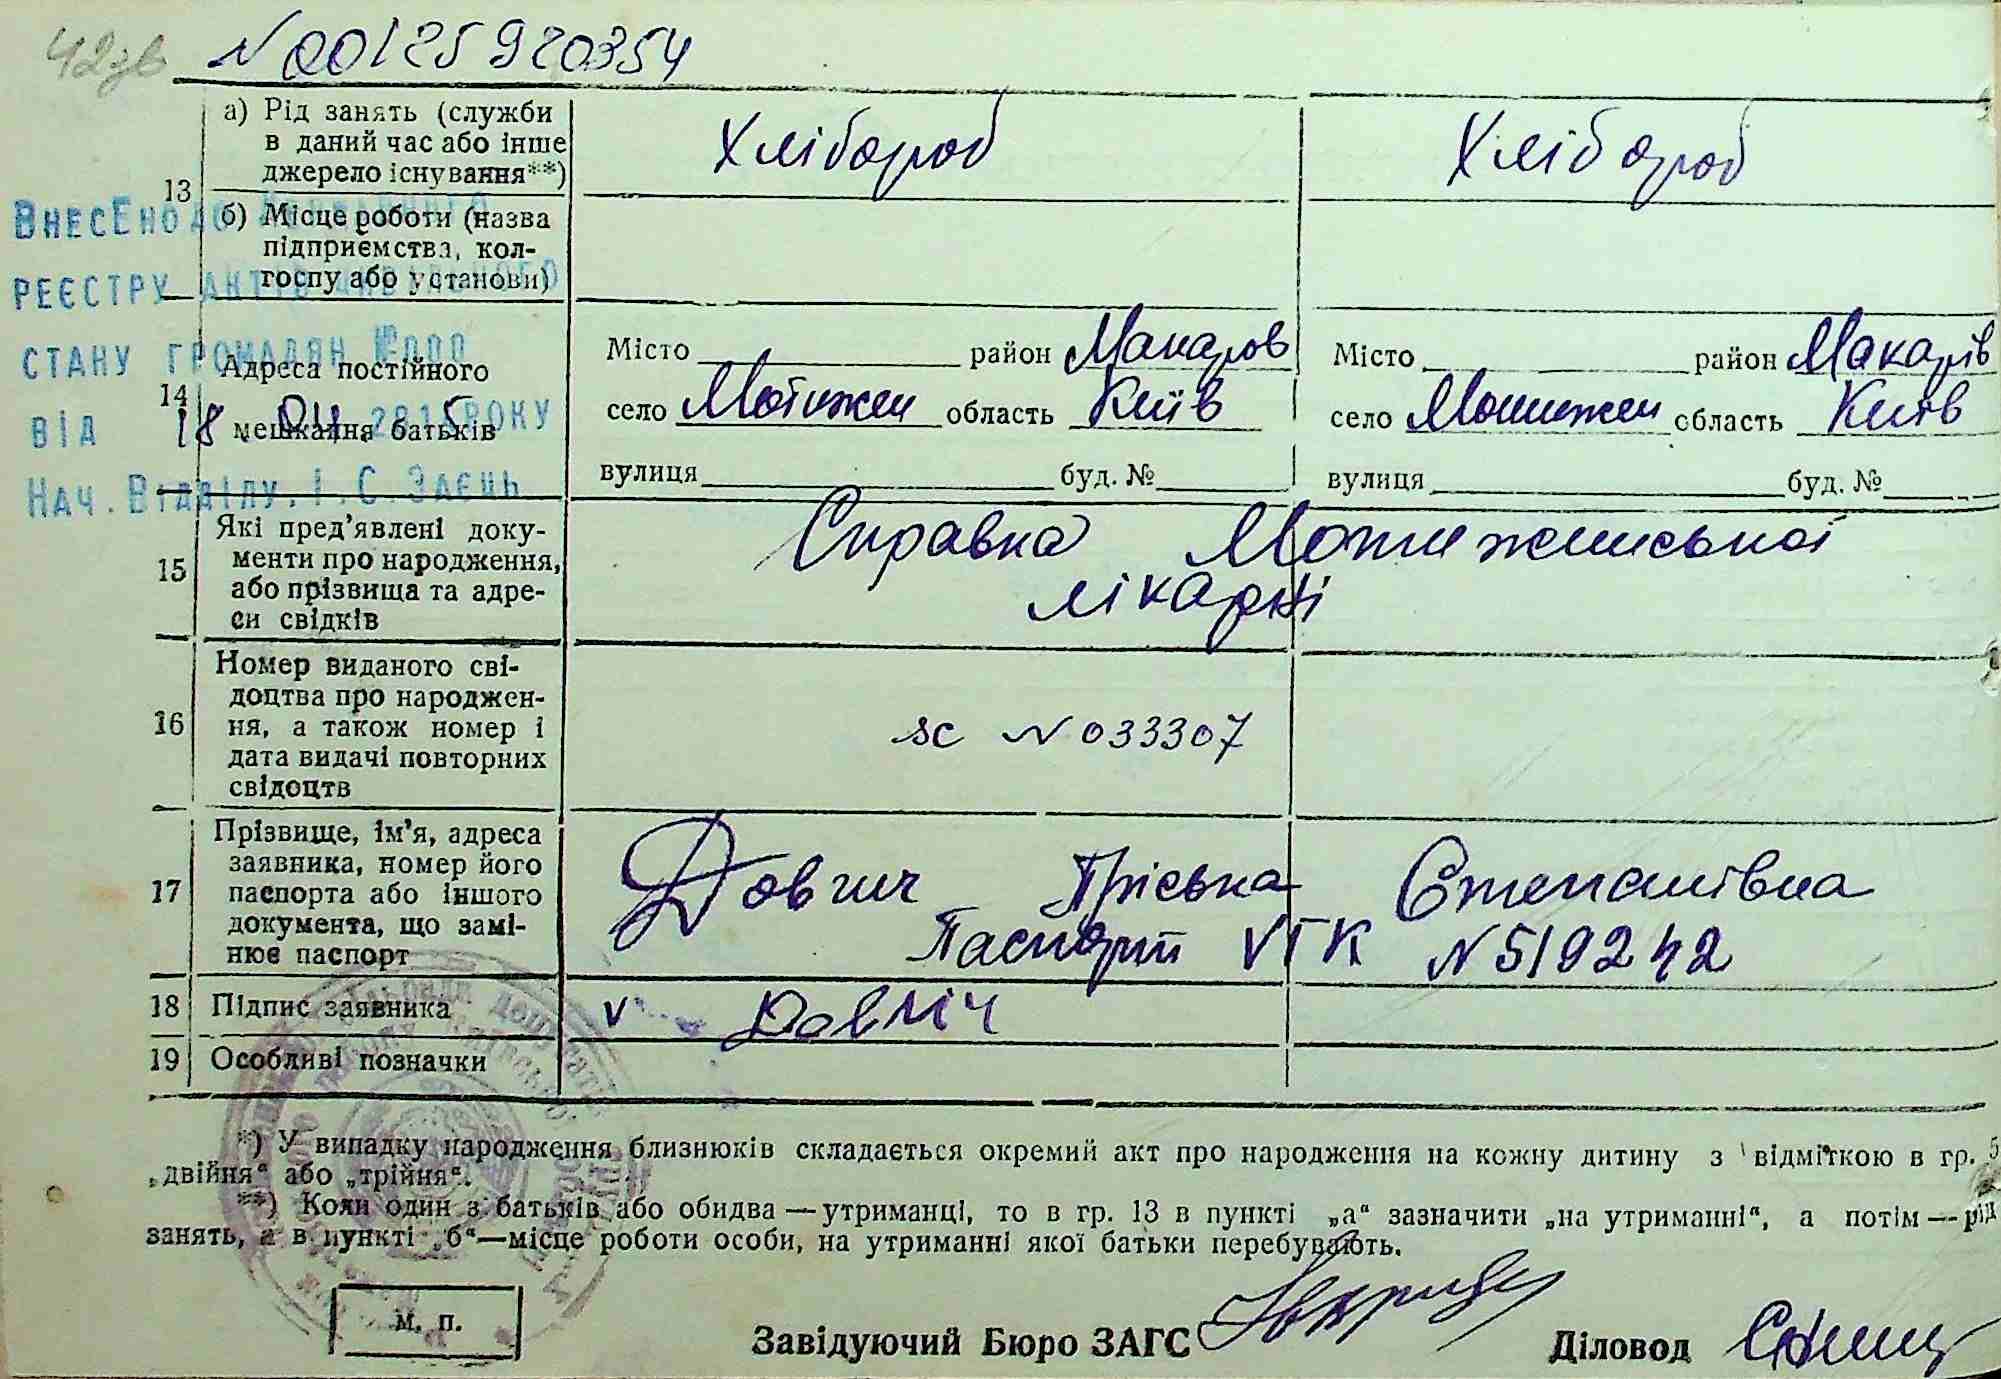 42зв N00125920354
13 а) Рід занять (служби в даний час або інше джерело існування**) Хлібороб Хлібороб
б) Місце роботи (назва підприємства, колгоспу або установи)
ВНЕСЕНО ДО
РЕЄСТРУ АКТІВ ЦИВІЛЬНОГО
СТАНУ ГРОМАДЯН №000
ВІД 18 04 2015 РОКУ
НАЧ. ВІДДІЛУ. І. С. ЗАЄЦЬ
14 Адреса постійного мешкання батьків
Місто район Макаров Місто район Макарів
село Мотижен область Київ село Мотижен область Київ
вулиця буд. № вулиця буд. №
15 Які пред'явлені документи про народження, або прізвища та адреси свідків
Справка Мотиженської
лікарні
16 Номер виданого свідоцтва про народження, а також номер і дата видачі повторних свідоцтв
N 033307
17 Прізвище, ім'я, адреса заявника, номер його паспорта або іншого документа, що замінює паспорт
Довгич Пріська Степанівна
Паспорт VГК N 519242
18 Підпис заявника v
19 Особливі позначки
*) У випадку народження близнюків складається окремий акт про народження на кожну дитину з відміткою в гр. 5
„двійня“ або „трійня“.
**) Коли один з батьків або обидва — утриманці, то в гр. 13 в пункті „а“ зазначити „на утриманні“, а потім — рід
занять, а в пункті „б“ — місце роботи особи, на утриманні якої батьки перебувають.
м. п.
Завідуючий Бюро ЗАГС Діловод